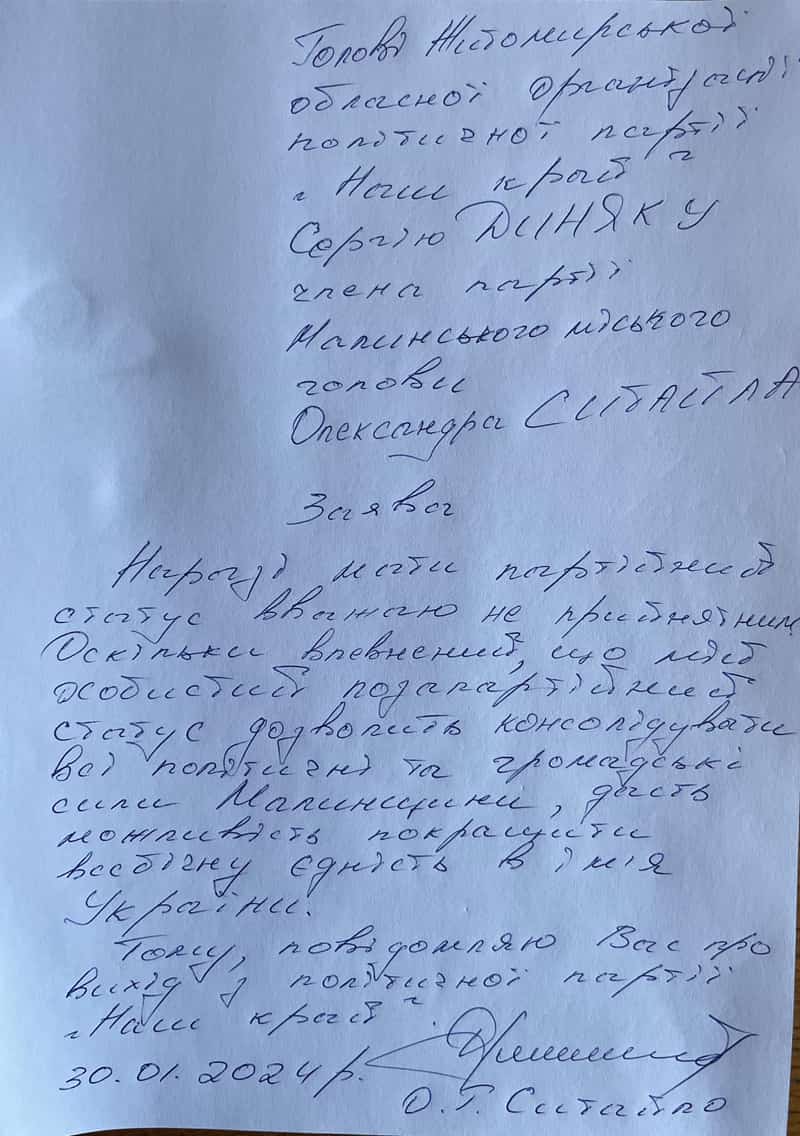 Голові Житомирської
обласної організації
політичної партії
„Наш край"
Сергію ДИНЯКУ
члена партії
Малинського міського
голови
Олександра СИТАЙЛА
Заява
Наразі мати партійний
статус вважаю не прийнятним
Оскільки впевнений, що мій
особистий позапартійний
статус дозволить консолідувати
всі політичні та громадські
сили Малинщини, дасть
можливість покращити
всебічну єдність в імя
України.
Тому, повідомляю Вас про
вихід з політичної партії
„Наш край".
30.01.2024р.
О.Г. Ситайло